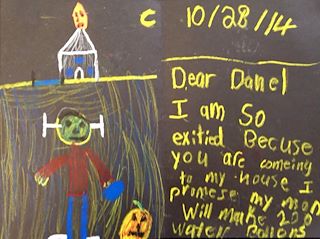 C
10/28/14
Dear Danel
I am so
exitied Becuse
you are comeing
to my house I
promese my mom
Will make 200
water Ballons